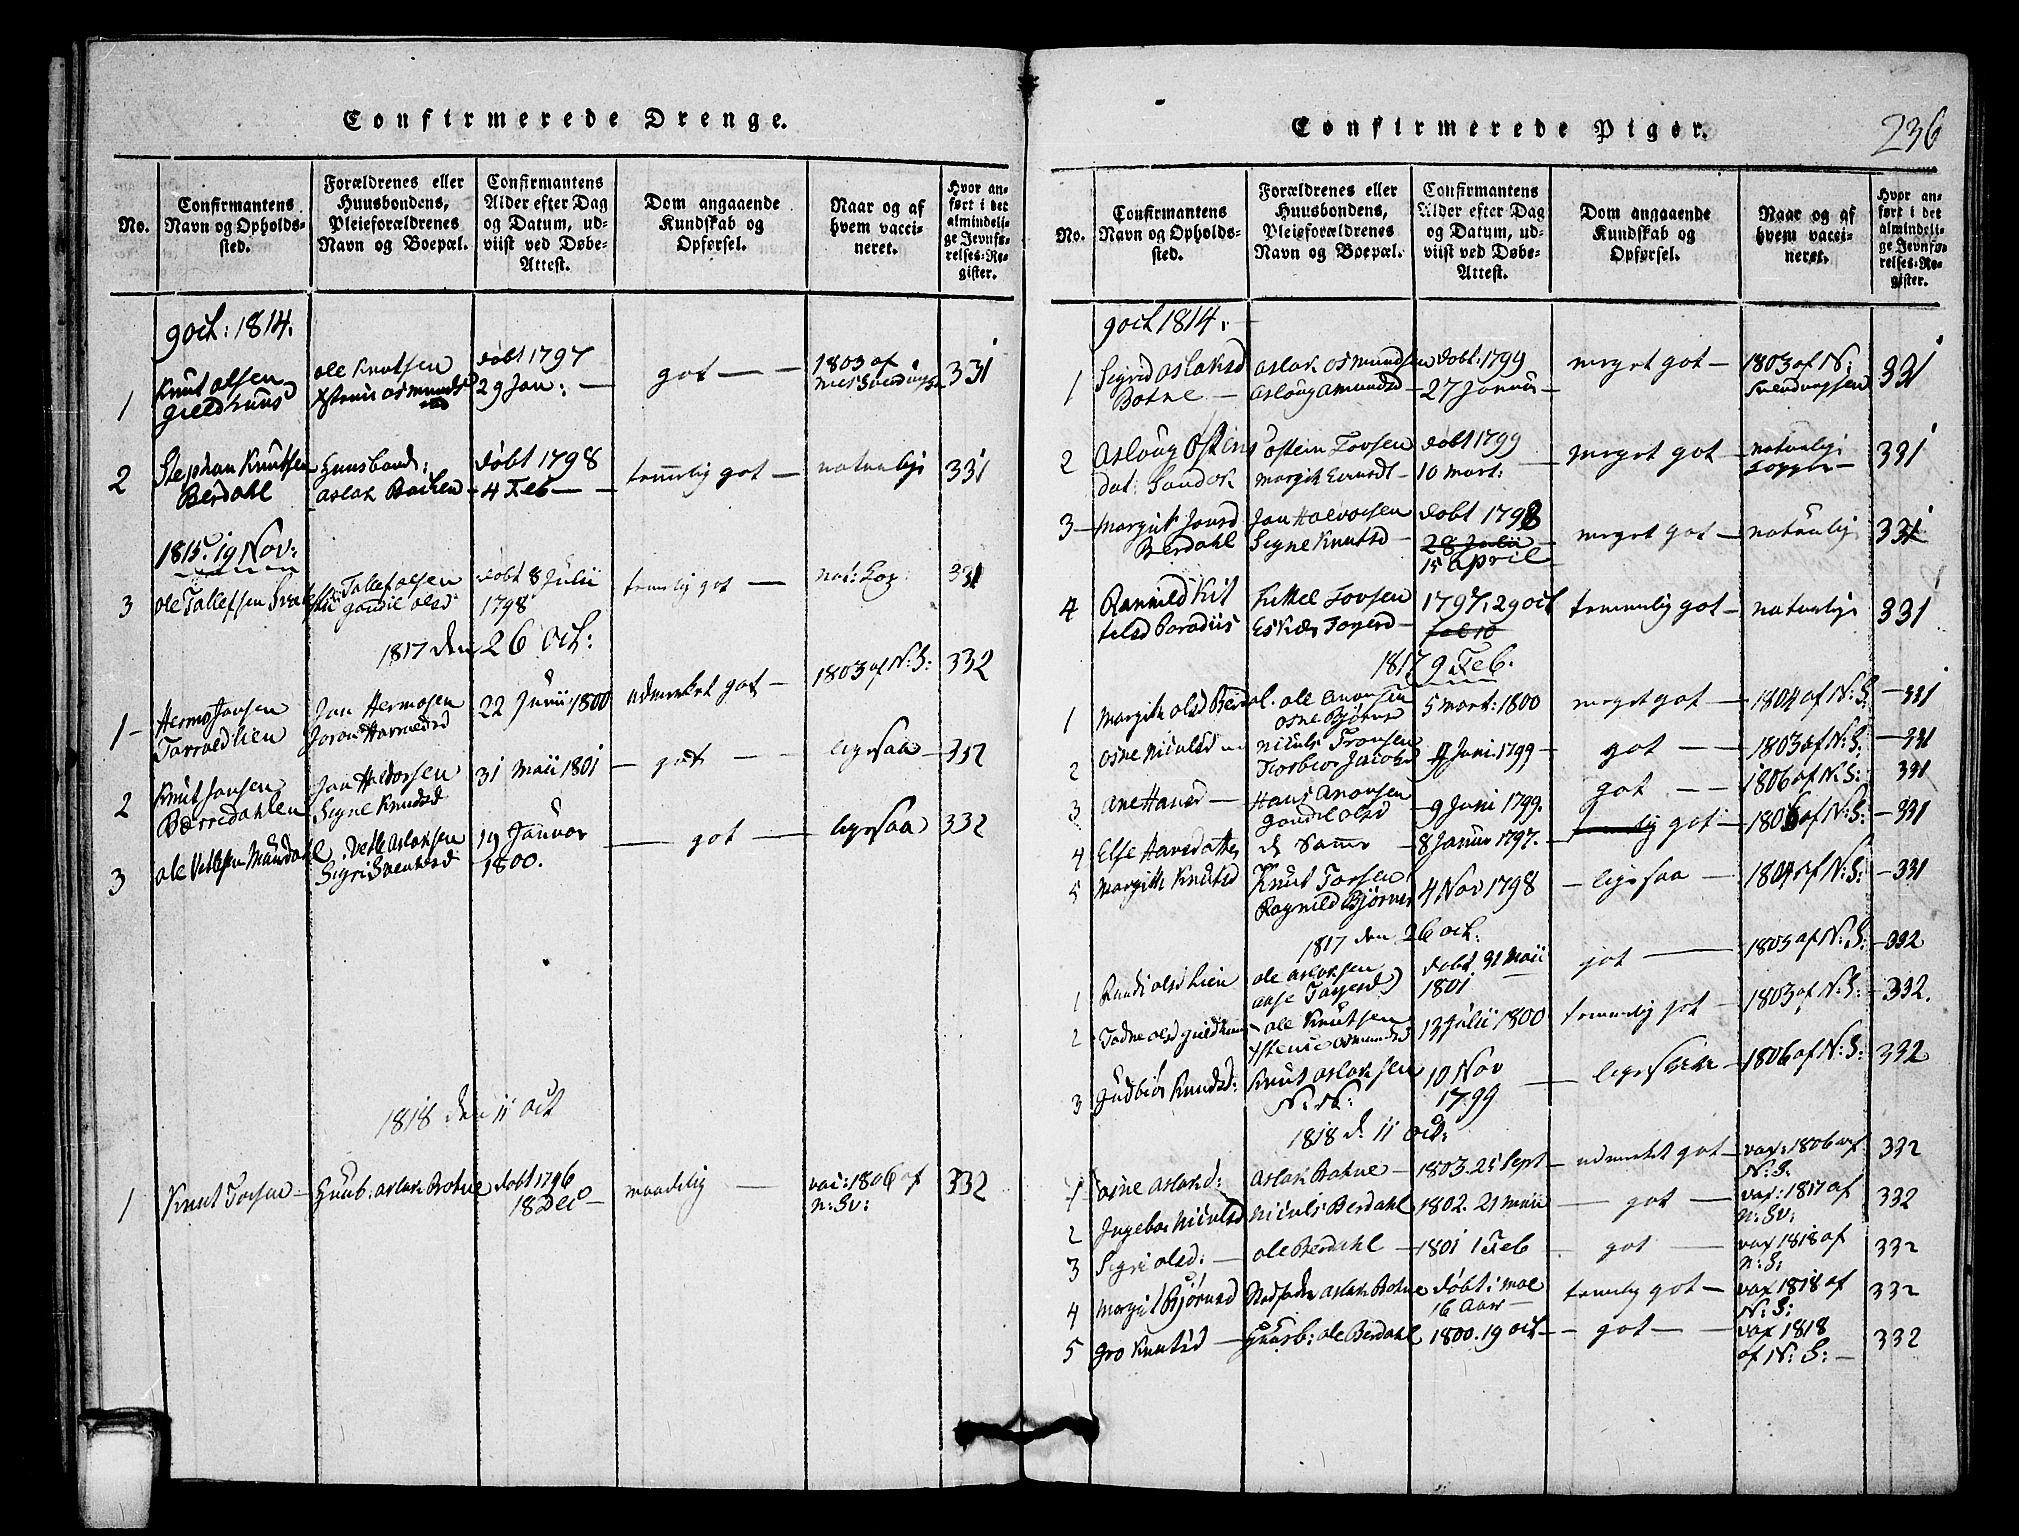 Confirmerede Drenge.
No.
Confirmantens
Navn og Opholds-
sted.
Forældrenes eller
Huusbondens,
Pleieforældrenes
Navn og Boepæl.
Confirmantens
Alder efter Dag
og Datum, ud-
viist ved Døbe-
Attest.
Dom angaaende
Kundskab og
Opførsel.
Naar og af
hvem vacci-
neret.
Hvor an-
ført i det
almindeli-
ge Jevnfø-
relses-Re-
gister.
9 oct: 1814.
1
Knut olsen
ole Knutsen
osmunds
døbt 1797
29 Jan: —
got —
1803 af
331
2
Stephan Knutsen
Berdahl
Huusbond:
aslak Bachen
døbt 1798
4 Feb —
temelig got —
naturlige
331
1815. 19 Nov:
3
ole Tallefsen
Tallef olsen
olsd
døbt 8 Julii
1798
temelig got —
nat: Kop:
331
1817 den 26 Oct:
1
Hermo Jansen
Jan Hermosen
22 Junii 1800
udmerket got —
1803 af N: S:
332
2
Knut Jansen
Berredahlen
Jan Haldorsen
Signe Knudsd
31 Maii 1801
— got —
ligesaa —
332
3
ole Vetlesen
Vetle Aslaksen
Sigri
19 Januar
1800.
— got —
ligesaa
332
1818 den 11 Oct
1
Knut Torsen —
Huusb: aslak Bothne
døbt 1796
18 Dec —
maadelig —
vac: 1806 af
N: Sv:
332
236
Confirmerede Piger.
No.
Confirmantens
Navn og Opholds-
sted.
Forældrenes eller
Huusbondens,
Pleieforældrenes
Navn og Boepæl.
Confirmantens
Alder efter Dag
og Datum, ud-
viist ved Døbe-
Attest.
Dom angaaende
Kundskab og
Opførsel.
Naar og af
hvem vacci-
neret.
Hvor an-
ført i det
almindeli-
ge Jevnfø-
relses-Re-
gister.
9 oct 1814. —
1
Sigrid aslaksd
Botne —
aslak osmundsen
aslaug amundsd
døbt: 1799
27 Januar —
meget got —
1803 af N:
Svendungsen
331
2
Aslaug Østens
dat: Sandok
østein Tovsen
margit
døbt 1799
10 mart:
meget got —
naturlige
Kopper —
331
3
margit Jansd
Berdahl
Jan Halvorsen
Signe Knutsd —
døbt 1798
28 Julii
15 april
meget got —
naturlig
331
4
Rannild Kit
telsd Paradiis
Kittel Tovsen
1797. 29 oct
temmelig got —
naturlige
331
1817 9 Feb.
1
Margith olsd Berdal.
ole
osne Bjørnsd
5 mart: 1800
meget got —
1804 af N: S. —
331
2
osne Niculsd
Niculs
Torbior
Juni 1799 —
got —
1803 af N: S. —
331
3
ane Hansd —
Hans
olsd
9 Juni 1799.
got —
1806 af N: S:
331
4
Else Hansdatter
de Samme —
8 Januar 1797.
temelig got —
1806 af N: S: —
331
5
margitte Knutsd
Knut Torsen
Ragnild Bjørns
4 Nov 1798
— ligesaa —
1804 af N: S: —
331
1817 den 26 oct:
1
olsd Lien
ole aslaksen
døbt 31 Maii
1801
got —
1805 af N: S: —
332
2
olsd
ole Knutsen
13 Julii 1800
temmelig got —
1803 af N: S: —
332.
3
Knudsd:
Knut aslaksen
10 Nov
1799
—
1806 af N: S:
332
1818 d. 11 oct:
1
osne aslaksd:
aslak Bothne —
1803. 25 Sept —
udmerket got —
vax: 1806 af
N: S.
332
2
Ingebor Niculsd
Niculs Berdahl
1802. 21 maii
— got —
vax: 1817 af
N: Sv:
332
3
Sigri olsd: —
ole Berdahl —
1801 1 Feb
— got —
vax 1818 af
N: S:
332
4
Margit Bjørnsd
aslak Bothne
døbt: mae
16 Aar —
temelig got —
vax 1818 af
N: S:
332
5
Gro Knutsd —
Huusb: ole Berdahl
1800. 19 oct —
— got —
vax 1818
af N: S: —
332